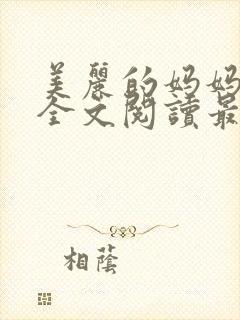 美麗的妈妈
全文閱讀最
相蔭